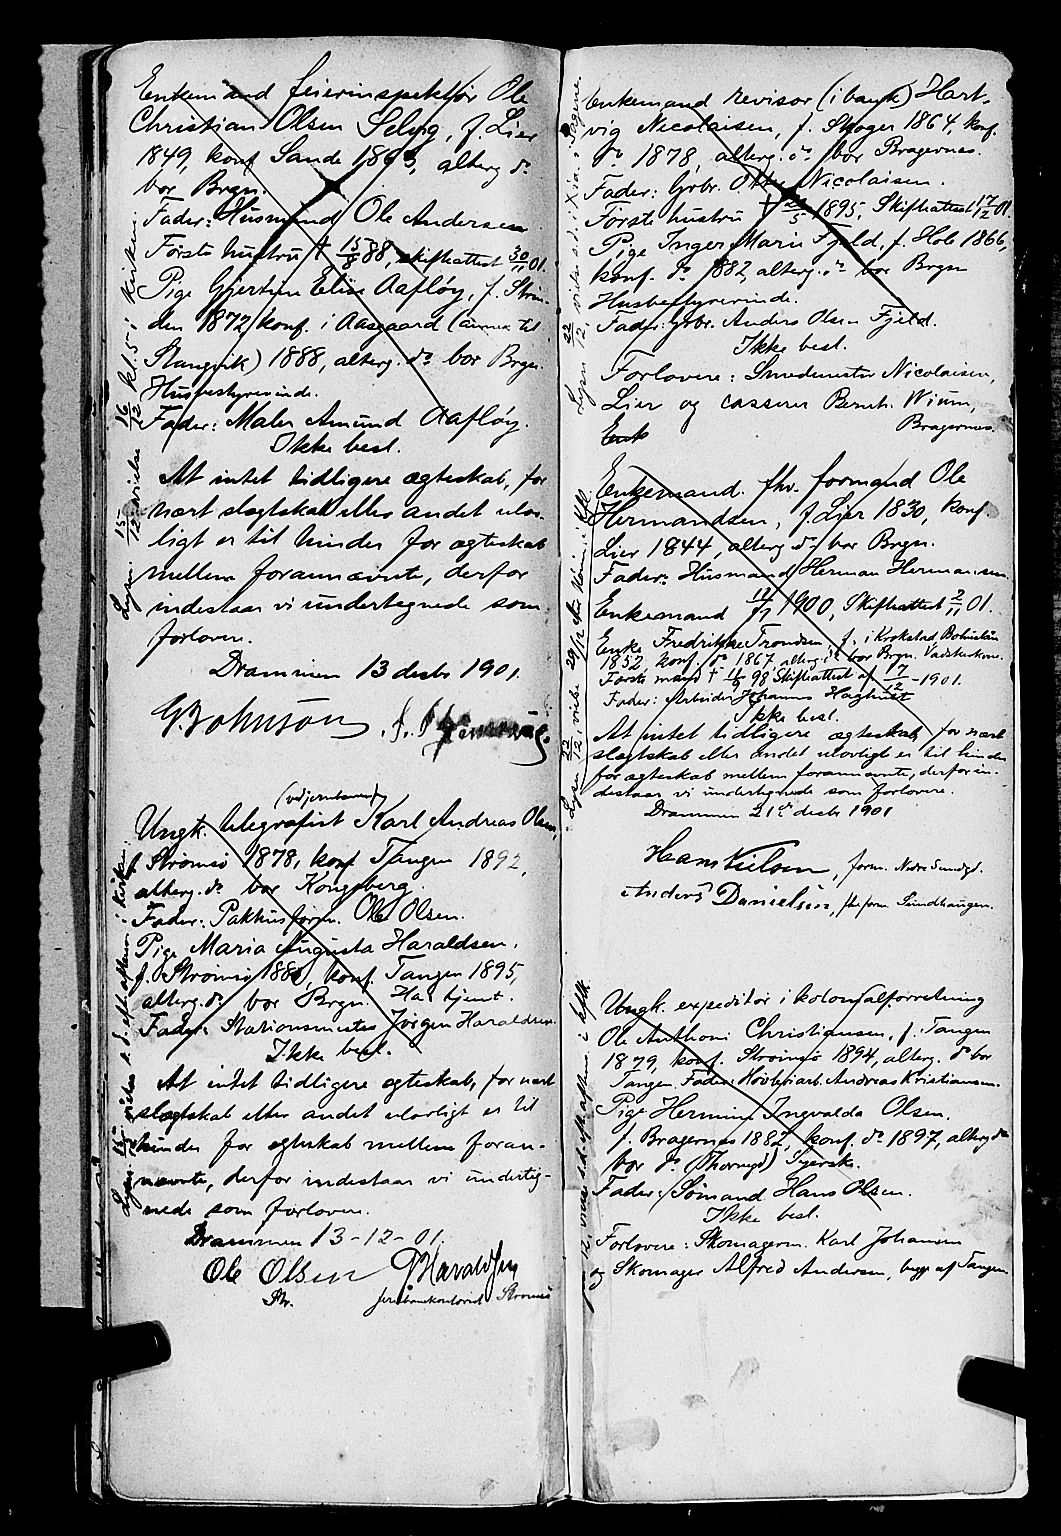 Enkemand feierinspektør Ole
Christian Olsen Selvig, f. Lier
1849, konf Sande 1863, alterg. do
bor Brgn.
Fader: Husmand Ole Andersen
Første hustru † 15/8 88, skifteattest 30/11 01.
Pige Gjertine Elise Aafløy, f. Strin-
den 1872 konf. i Aasgaard (annex til
Stangvik) 1888, alterg. do bor Brgn.
Husbestyrerinde.
Fader: Maler Amund Aafløy.
Ikke besl.
At intet tidligere ægteskab, for
nært slægtskab eller andet ulov-
ligt er til hinder for ægteskab
mellem forannævnte, derfor
indestaar vi undertegnede som
forlovere.
Drammen 13 decbr 1901.
G. Johnson
Lysn. 15/12 vielse 16/12 kl. 5 i kirken.
(ved jernbanen)
Ungk. telegrafist Karl Andreas Olsen,
f. Strømsø 1878, konf Tangen 1892,
alterg. do bor Kongsberg.
Fader: Pakhusform. Ole Olsen.
Pige Maria Augusta Haraldsen,
f. Strømsø 1880, konf. Tangen 1895,
alterg. do bor Brgn. Har tjent.
Fader: Stationsmester Jörgen Haraldsen
Ikke besl.
At intet tidligere ægteskab, for nært
slægtskab eller andet ulovligt er til
hinder for ægteskab mellem foran-
nævnte, derfor indestaar vi underteg-
nede som forlovere.
Drammen 13-12-01.
Ole Olsen Haraldsen
Str. jernbanekontorist Strømsø
Lysn. 15/12 vielse s. d. eft. aftens. i kirken.
Enkemand revisor (i bank) Hart-
vig Nicolaisen, f. Skoger 1864, konf.
do 1878, alterg. do bor Bragernes.
Fader: Grbr. Otto Nicolaisen.
Første hustru † /5 1895, Skifteattest 17/12 01.
Pige Inger Marie Fjeld, f. Hole 1866,
konf. do 1882, alterg. do bor Brgn
Husbestyrerinde.
Fader: Grbr. Anders Olsen Fjeld.
Ikke besl.
Forlovere: Smedmester Nicolaisen,
Lier og casserer Bernh. Wium,
Bragernes.
Enk
Lysn 22/12, vielse s. d.
Enkemand fhv. formand Ole
Hermandsen, f. Lier 1830, konf.
Lier 1844, alterg do bor Brgn.
Fader: Husmand Herman Hermansen
Enkemand 1900, Skifteattest 2/11 01.
Enke Fredrikke Trondsen f. i Krokstad Bohuslän
1852, konf. do 1867, alterg. do bor Brgn.
Første mand † 98, Skifteattest af 7/12 - 1901.
Fader: Arbeider Johannes
Ikke besl.
At intet tidligere ægteskab, for nært
slægtskab eller andet ulovligt er til hinder
for ægteskab mellem forannævnte, derfor in-
destaar vi undertegnede som forlovere.
Drammen 21de decbr 1901
Hans Nielsen, form. Nedre Sundgd.
Anders Danielsen, fhv form. Sundhaugen.
Lysn 22/12, vielse 29/12
Ungk. expeditør i kolonialforretning
Ole Anthoni Christiansen, f. Tangen
1879, konf. Strømsø 1894, alterg. do bor
Tangen. Fader: Høvleriarb. Andreas Kristiansen.
Pige Hermine Ingvalda Olsen.
f. Bragernes 1882, konf. do 1897, alterg do
bor do (Thornegd) Syersk.
Fader: Sømand Hans Olsen.
Ikke besl.
Forlovere: Skomagerm. Karl Johansen
og Skomager Alfred Andersen, begge af Tangen